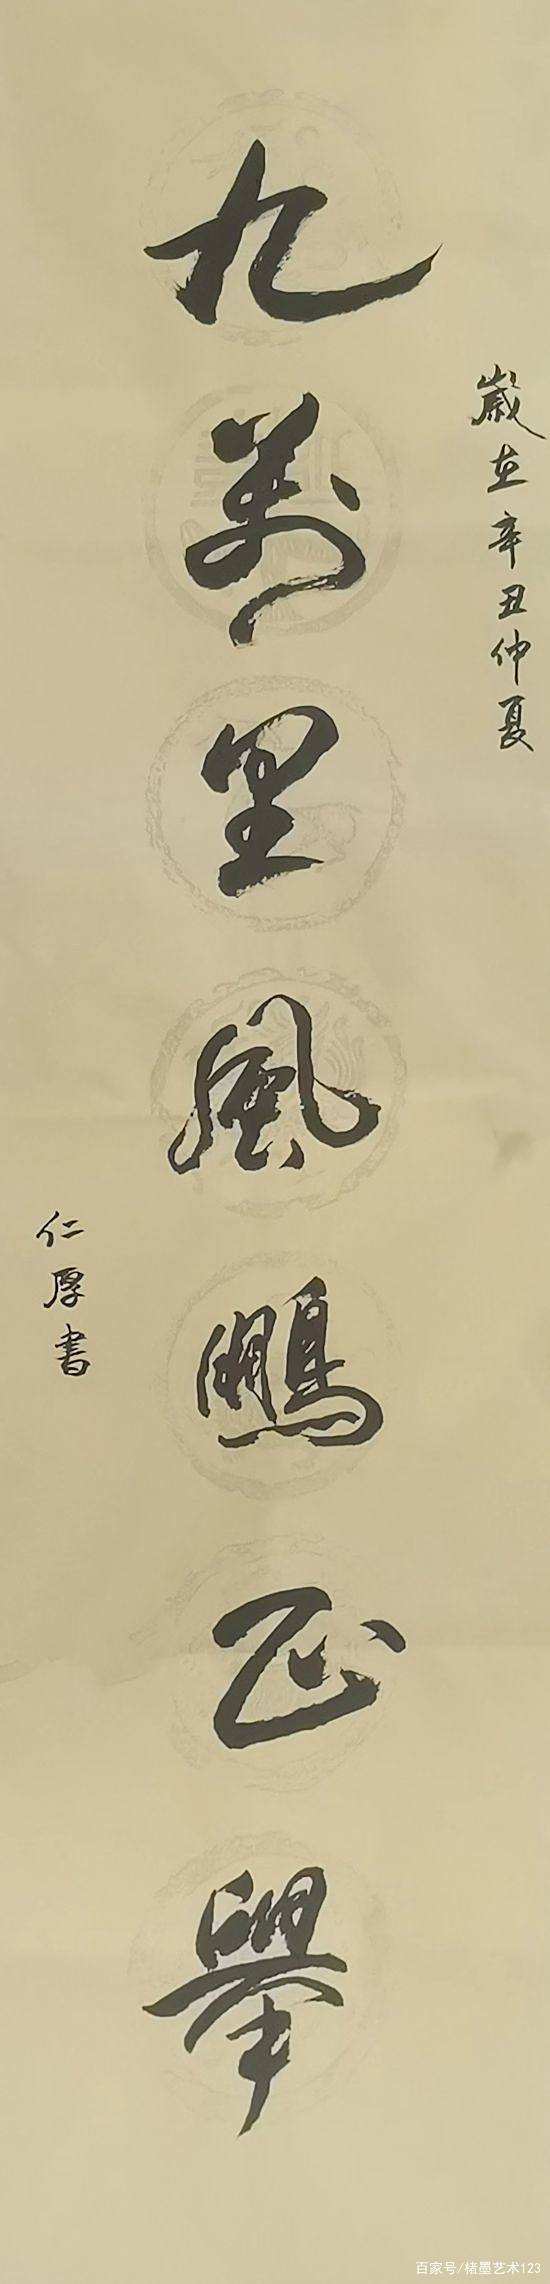 歲在辛丑仲夏
九萬里風鵬正舉
仁厚書
百家号/楮墨艺术123